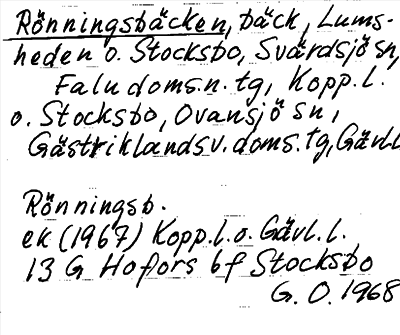 Rönningsbäcken, bäck, Lums-
heden o. Stocksbo, Svärdsjö sn,
Falu doms.n. tg, Kopp.l.
o. Stocksbo, Ovansjö sn,
Gästriklands v. doms. tg, Gävl.l
Rönningsb.
ek (1967) Kopp.l. o. Gävl. l.
13 G Hofors bf Stocksbo
G. O. 1968